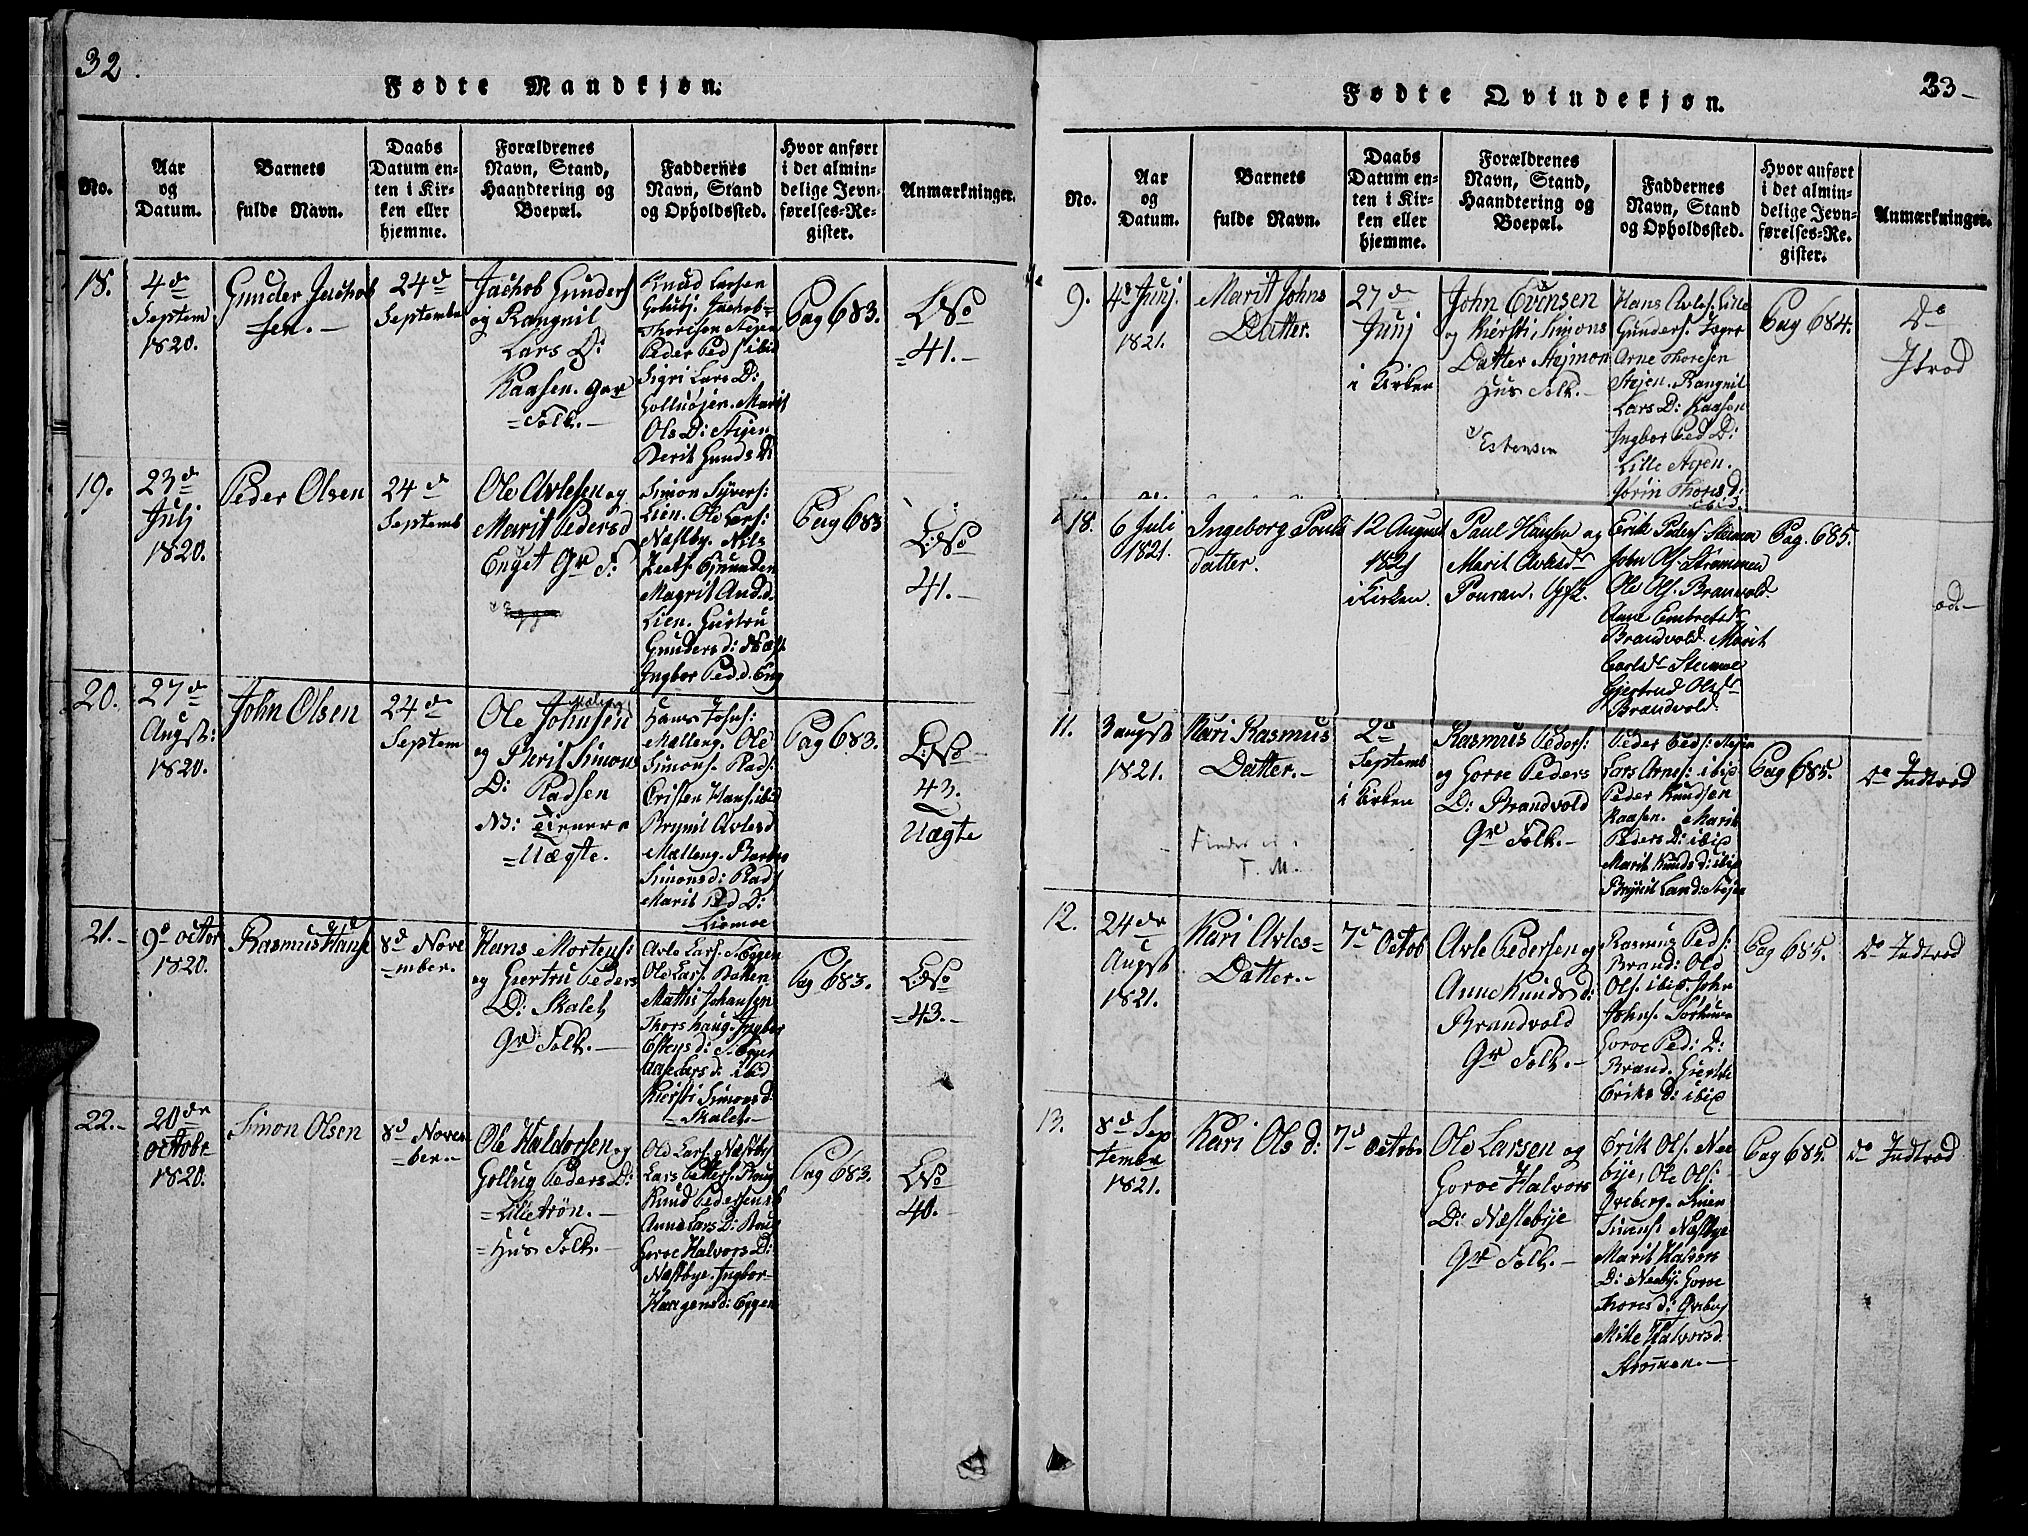 32.
Fødte Mandkjøn.
No.
Aar
og
Datum.
Barnets
fulde Navn.
Daabs
Datum en-
ten i Kir-
ken eller
hjemme.
Forældrenes
Navn, Stand,
Haandtering og
Boepæl.
Faddernes
Navn, Stand
og Opholdssted.
Hvor anført
i det almin-
delige Jevn-
førelses-Re-
gister.
Anmærkninger.
18.
4de
Septem
1820.
Gunder Jachob
sen.
24de
Septembr
Jachob Gunders
og Rangnil
Lars D:
Kaasen. Gar
=Folk.
Knud Larsen
Jachob
Thoresen Steien
Peder Peds ibid
Sigri Lars D:
Marit
Ols D: Steien
Berit Gunds D:
Pag 683.
LNo
=41.
19.
23de
Julj
1820.
Peder Olsen
24de
Septemb
Ole Avlesen og
Marit Pedersd
Enget Gr F:
Simon Syvers:
Lien. Ole Lars:
Næstby. Nils
Magrit And.d.
Lien. Giertru
Gunders d: Næst
Ingbor Ped.d. Eng
Pag 683
LNo
41.
20.
27de
Augst:
1820.
John Olsen
24de
Septem
Ole Johnsen
og Berit Simons
D: Radsen
NB: Tienere
=Uægte.
Hans Johs:
Mælleng. Ole
Simons. Rads:
Cristen Hans ibid
Brynil Avlesd
Mælleng. Barbro
Simonsd: Rads
Marit Ped D:
Liemoe
Pag 683.
LNo
43.
Uægte
21.
9de octor
1820.
Rasmus Hans
8d Nove
=mber.
Hans Mortens:
og Giertru Peders
D: Skalet
Gr Folk.
Avle Lars: Eggen
Ole Lars: Bakken
Mathis Johansen
Thorshaug. Ingbor
Estens d: Eggen
Aase Lars d: ibid
Kiersti Simonsd
Skalet.
Pag 683.
LNo
=43.
22.
20de
octobr
1820.
Simon Olsen
8d Novem
=ber.
Ole Haldorsen og
Gollug Peders D:
=Lilletrøn.
=Hus Folk.
Ole Lars: Næstby
Lars Petters. Haug
Knud Pedersen
Anne Lars D:
Goroe Halvors D:
Næstbye. Ingbor
Haagensd: Eggen
Pag 683.
LNo
40.
33
Fødte Qvindekjøn.
No.
Aar
og
Datum.
Barnets
fulde Navn.
Daabs
Datum en-
ten i Kir-
ken eller
hjemme.
Forældrenes
Navn, Stand,
Haandtering og
Boepæl.
Faddernes
Navn, Stand
og Opholdssted.
Hvor anført
i det almin-
delige Jevn-
førelses-Re-
gister.
Anmærkninger.
9.
4d Junj.
1821.
Marit Johns
Datter.
27de
Junj
i Kirken
John Evensen
og Kiersti Simons
Datter Steimoe
Hus Folk.
Estensen
Hans Avles: Lille
Gunders:
Arne Thoresen
Steien. Rangnil
Lars D: Kaasen
Ingbor Ped D:
Lille Steien.
Jorin Thores d:
ibid.
Pag 684.
Do
18.
6 Juli
1821
Ingeborg Pouls
datter.
12 August
1821
i Kirken.
Paul Hansen og
Marit Avlesdr
Erik Peders
John Ols. Strømmen
Ole Ols. Brandvold.
Anne Embretsdr
Brandvold. Marit
Gjertrud Olsdr
Brandvold
Pag. 685.
11.
3 augst
1821.
Kari Rasmus
Datter.
2d
Septemb
i Kirken
Rasmus Peders:
og Goroe Peders
D: Brandvold
Gr Folk.
Peder Peds: Steien
Lars Arnes: ibid
Peder Knudsen
Kaasen. Marit
Peders D: ibid
Marit Knuds d: ibid
Brynil Lars d: Steien
Pag 685.
Do Indtrød
12.
24de
Augst
1821.
Kari Avles=
Datter.
7de Octob
Avle Pedersen og
Anne Knuds d:
Brandvold
Gr Folk.
Rasmus Peds:
Brand: Ole
Ols. ibid. John
Johns.
Goroe Ped: D:
Brand. Giertru
Eriks d: ibid
Pag 685.
Do Indtrød
13.
8d Sep
tember
1821.
Kari Ols d:
7d Octobr
Ole Larsen og
Goroe Halvors
D: Næstebye
Gr Folk.
Erik Ols. Næs
bye, Ole Ols:
Qveberg. Simen
Simens: Næstbye
Marit Halvors
D: Goroe
Thores d: Qveberg
Halvorsd.
Strømmen.
Pag 685.
do Indtrød